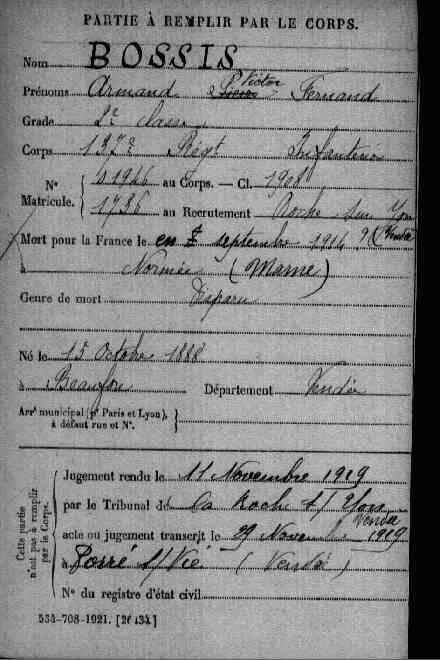 PARTIE À REMPLIR PAR LE CORPS.
Nom BOSSIS
Prénoms Armand Pierre Victor Fernand
Grade 2e classe
Corps 137e Régt Infanterie
N° Matricule. 01946 au Corps. — Cl. 1908
1786 au Recrutement Roche sur Yon
Vendée
Mort pour la France le en septembre 1914
à Normée (Marne)
Genre de mort Disparu
Né le 15 Octobre 1888
à Beaufou Département Vendée
Arrt municipal (pr Paris et Lyon),
à défaut rue et N°.
Cette partie n'est pas à remplir par le Corps.
Jugement rendu le 11 Novembre 1919
par le Tribunal de La Roche s/ Yon
Vendée
acte ou jugement transcrit le 29 Novembre 1919
à Poiré s/ Vie (Vendée)
N° du registre d'état civil
534-708-1921. [26434]